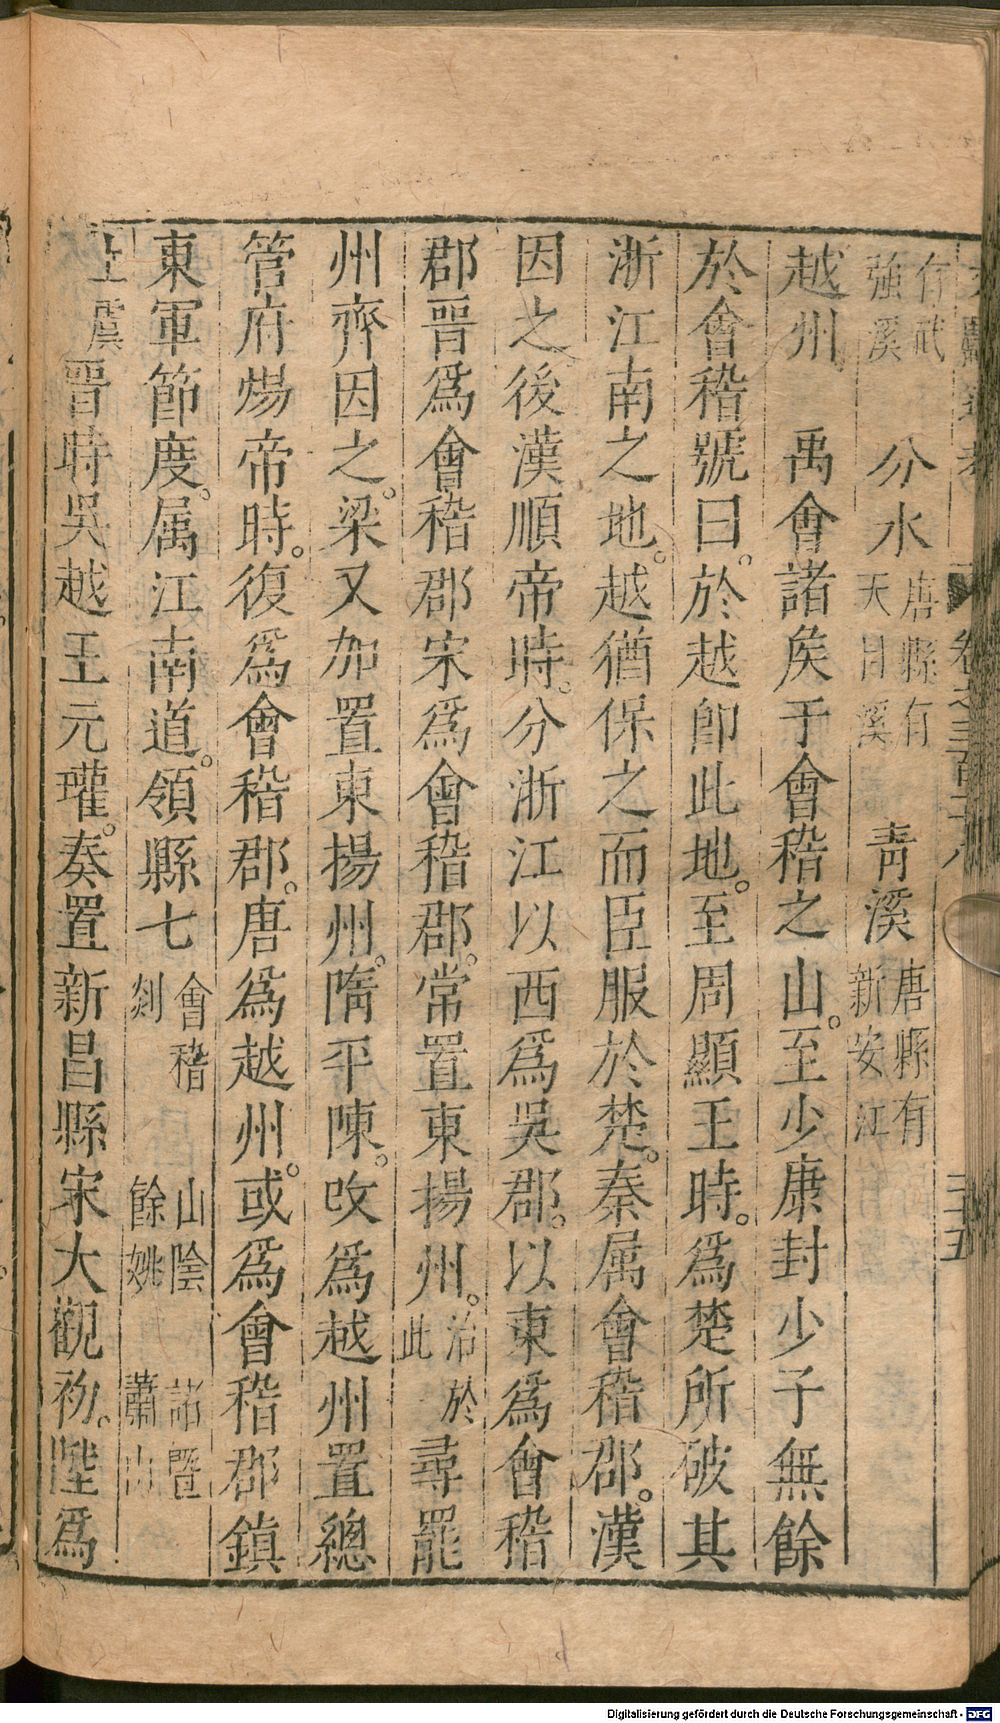 文獻通考 卷之三百十八 三十五
有武強溪 分水 唐縣有天目溪 青溪 唐縣有新安江
越州 禹會諸矦于會稽之山。至少康封少子無餘
於會稽號曰。於越卽此地。至周顯王時。爲楚所破其
浙江南之地。越猶保之而臣服於楚。秦属會稽郡。漢
因之後漢順帝時。分浙江以西爲吳郡。以東爲會稽
郡晉爲會稽郡宋爲會稽郡。常置東揚州。治於此尋罷
州齊因之。梁又加置東揚州。隋平陳。改爲越州置總
管府煬帝時。復爲會稽郡。唐爲越州。或爲會稽郡鎮
東軍節度。属江南道。領縣七 會稽 山陰 諸暨 剡 餘姚 蕭山
上虞 晉時吳越王元瓘。奏置新昌縣宋大觀初。陞爲
Digitalisierung gefördert durch die Deutsche Forschungsgemeinschaft - DFG